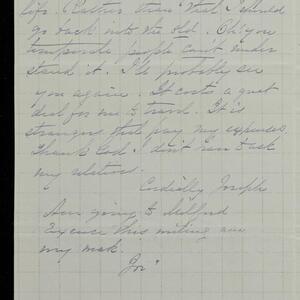 life. Rather than that I should
go back into the old. Oh! you
people can't under
stand it. I'll probably see
you again. It costs a great
deal for me to travel. It is
strangers that pay my expenses,
thank God I don't have to ask
my relatives.
Cordially Joseph
Am going to Medford
Excuse this writing am
my
Joe